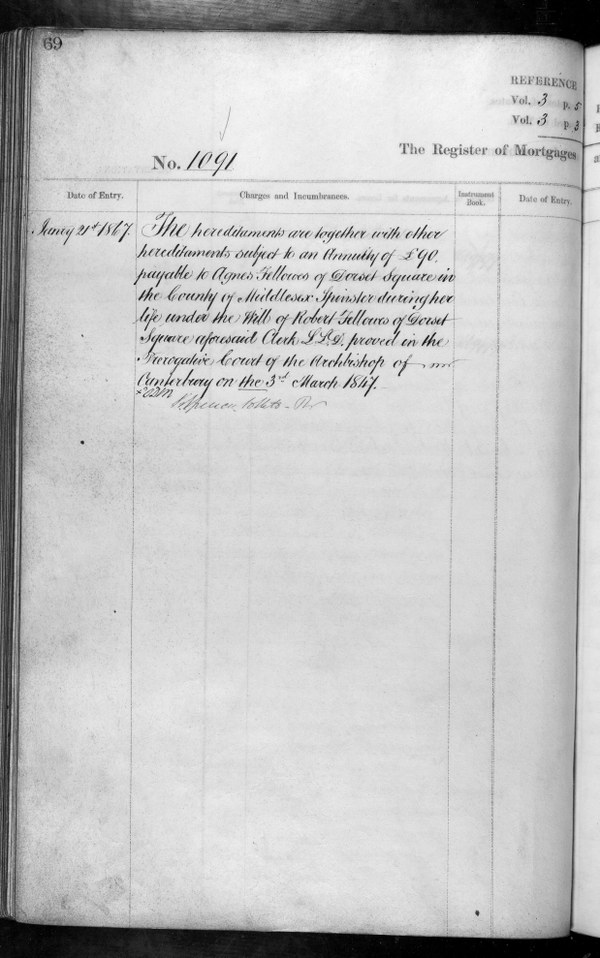 69
REFERENCE
Vol. 3 p. 5
Vol. 3 p. 3
No. 1091
The Register of Mortgages
Date of Entry.
Charges and Incumbrances.
Instrument Book.
Date of Entry.
Jancy 21st 1867.
The hereditaments are together with other
hereditaments subject to an Annuity of £90.
payable to Agnes Fellowes of Dorset Square in
the County of Middlesex Spinster during her
life under the Will of Robert Fellowes of Dorset
Square aforesaid Clerk L.L.D. proved in the
Prerogative Court of the Archbishop of
Canterbury on the 3rd March 1847.